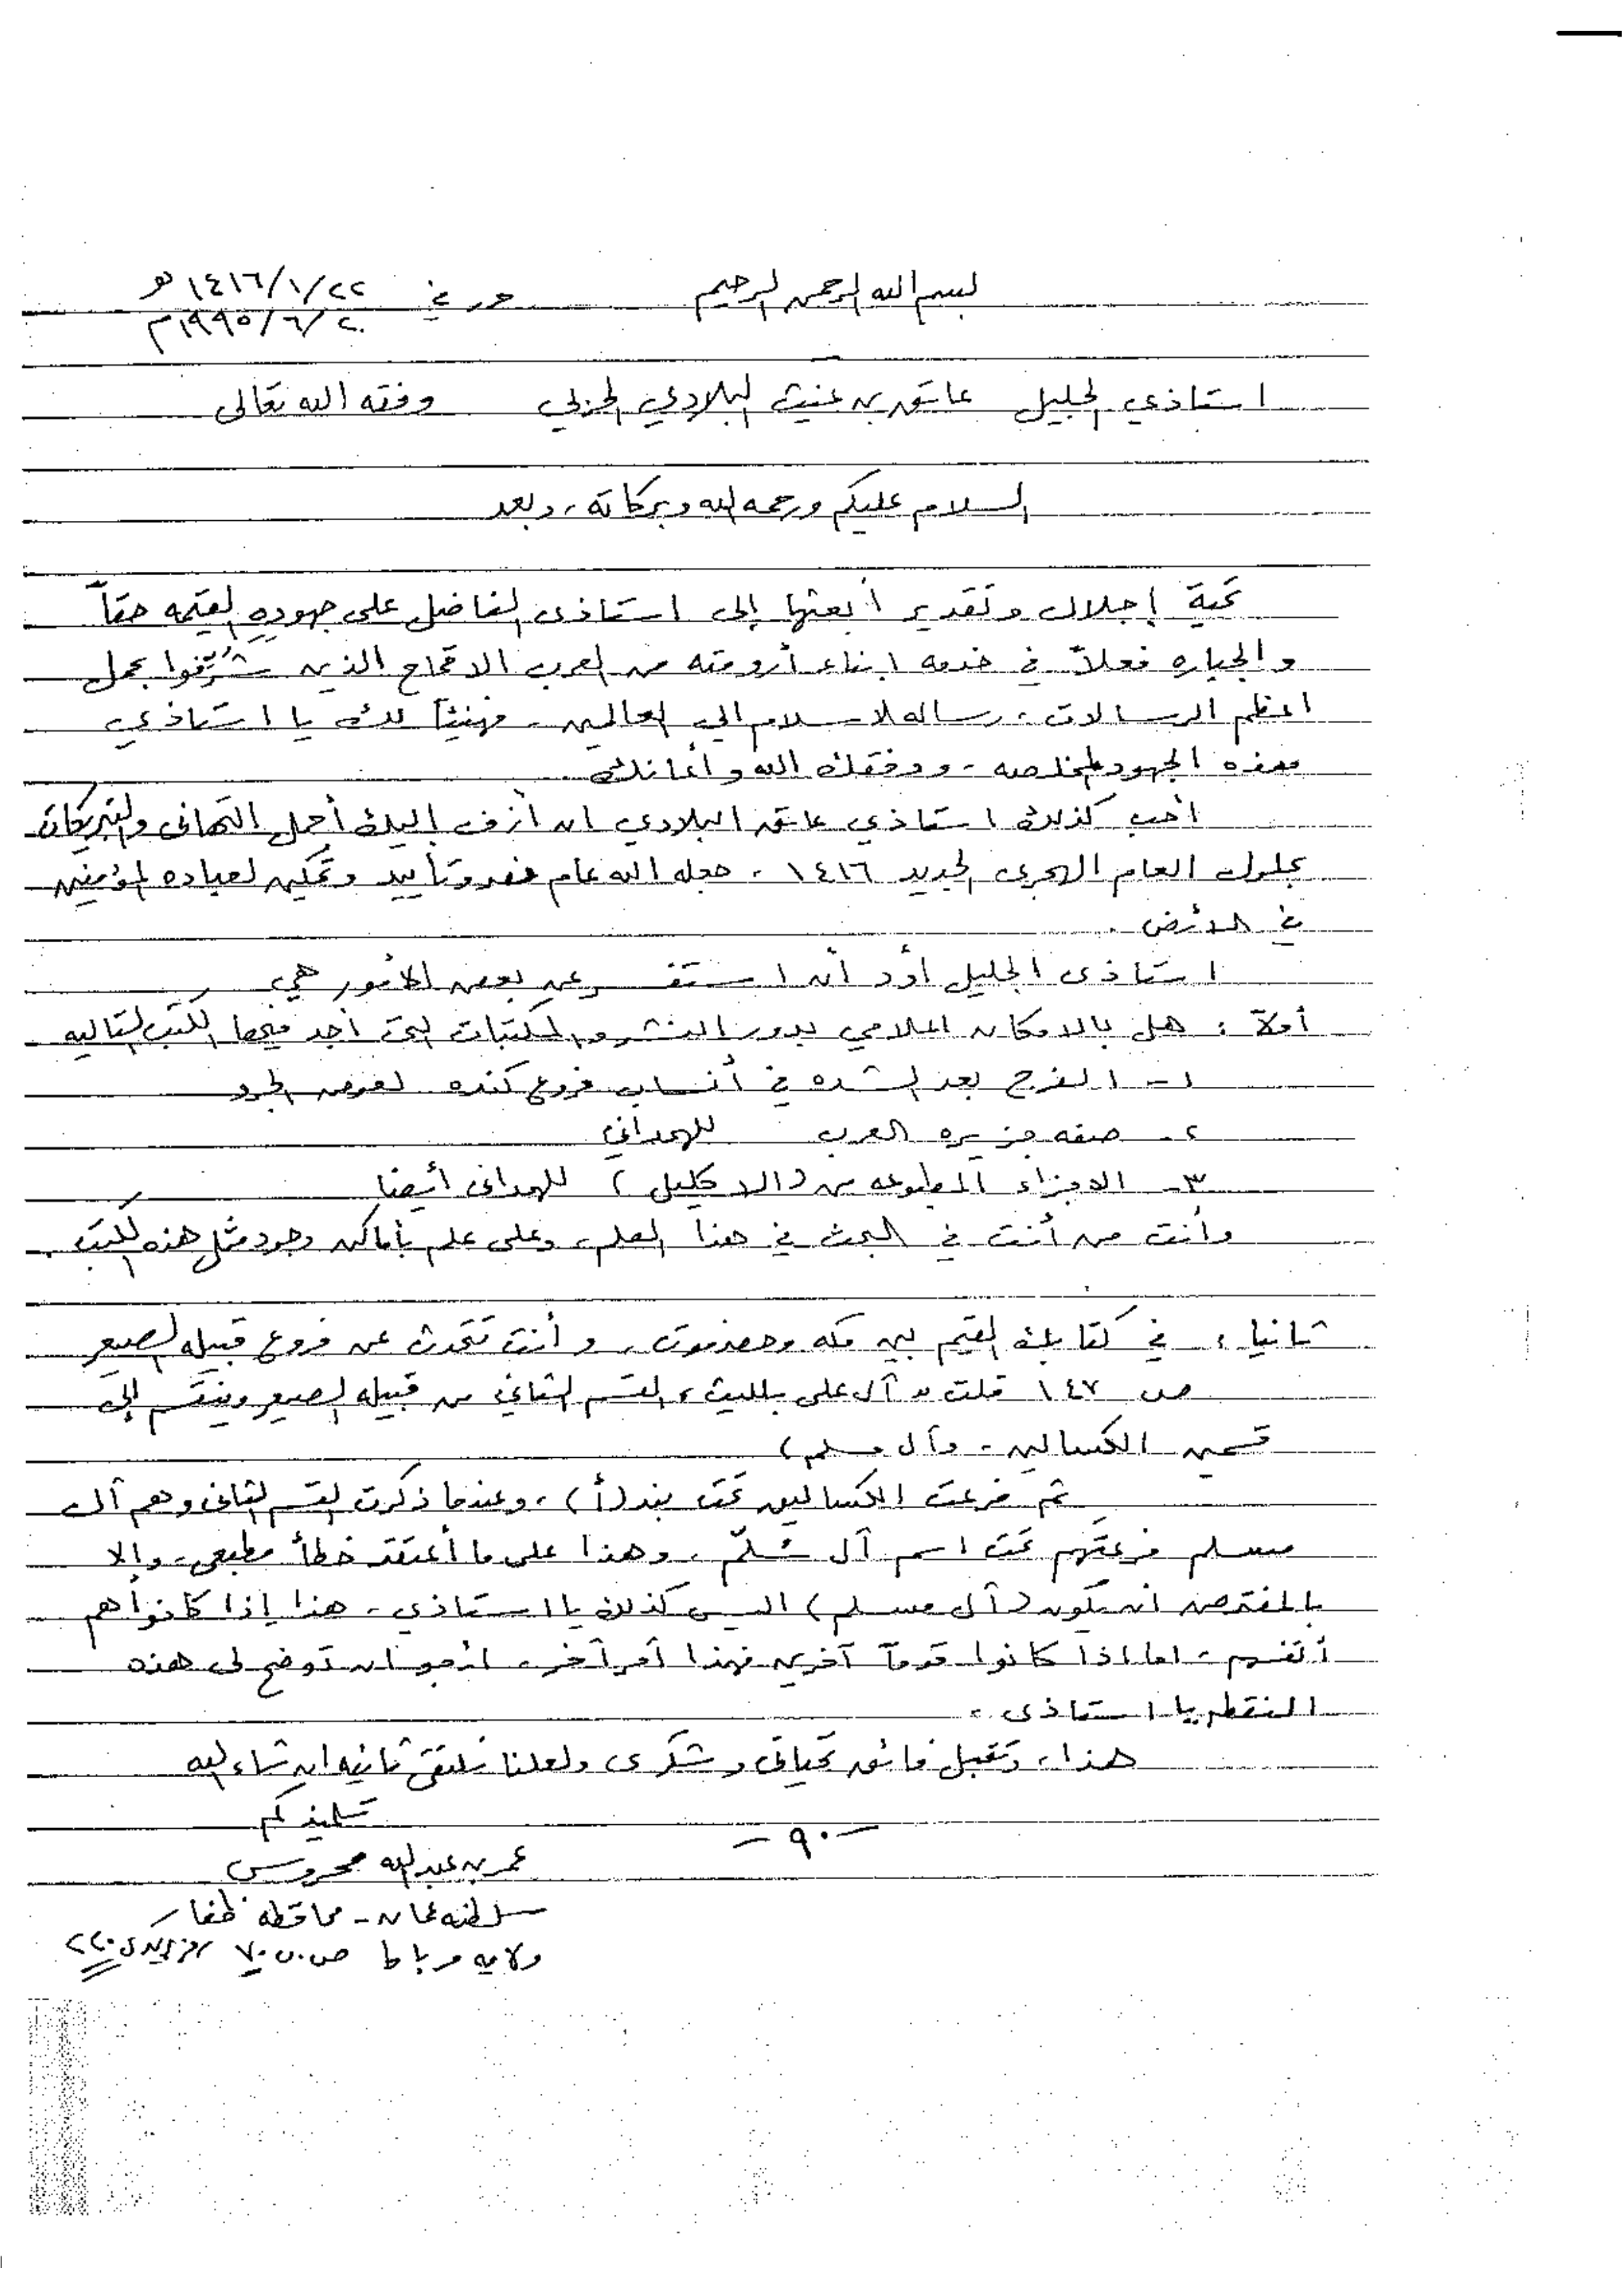 بسم الله الرحمن الرحيم حرر في ٢٢/١/١٤١٦ هـ
٢٠/٦/١٩٩٥م
استاذي الجليل عاتق بن غيث البلادي الحربي وفقه الله تعالى
السلام عليكم ورحمه الله وبركاته ، وبعد
تحية إجلال وتقدير أبعثها إلى استاذى الفاضل على جهوده القيمه حقاً
والجباره فعلاً في خدمه ابناء أرومته من العرب الاقحاح الذين شُرِّفوا بحمل
اعظم الرسالات ، رساله الاسلام الي العالمين . فهنيئاً لك يا استاذي
بهذه الجهود المخلصه . ووفقك الله وأعانك
أحب كذلك استاذي عاتق البلادي ان أزف إليك أجمل التهانى والتبريكات
بحلول العام الهجرى الجديد ١٤١٦ . جعله الله عام نصر وتأييد وتمكين لعباده المؤمنين
في الأرض .
استاذى الجليل أود أن استفسر عن بعض الأمور هي
أولاً : هل بالامكان اعلامي بدور النشر والمكتبات التى أجد فيها الكتب التاليه
١ - الفرج بعد الشده في أنساب فروع كنده لعوض الجرو
٢ - صفه جزيره العرب للهمداني
٣ - الاجزاء المطبوعه من (الاكليل) للهمدانى أيضا
وأنت من أنت في البحث في هذا العلم ، وعلى علم بأماكن وجود مثل هذه الكتب .
ثانيا : في كتابك القيم بين مكه وحضرموت ، وأنت تتحدث عن فروع قبيله الصيعر
ص ١٤٧ قلت " آل على بلليث ، القسم الثاني من قبيله الصيعر وينقسم إلى
قسمين الكسالين . وآل مسلم)
ثم فرعت الكسالين تحت بند (أ) ، وعندما ذكرت القسم الثانى وهم آل
مسلم فرعتهم تحت اسم آل سُلّم ، وهذا على ما أعتقد خطأ مطبعى ، والا
بالمفترض ان يكون (آل مسلم) اليس كذلك يا استاذي . هذا إذا كانوا هم
أنفسهم ، اما اذا كانوا قوماً آخرين فهذا أمر آخر ، ارجو ان توضح لى هذه
النقطه يا استاذى .
هذا ، وتقبل فائق تحياتى وشكرى ولعلنا نلتقى ثانيه ان شاء الله
تلميذكم
- ٩٠ -
عمر بن عبدالله محروس
سلطنه عمان - محافظه ظفار
ولايه مرباط ص.ب ٧٠ رمز بريدى ٢٢٠